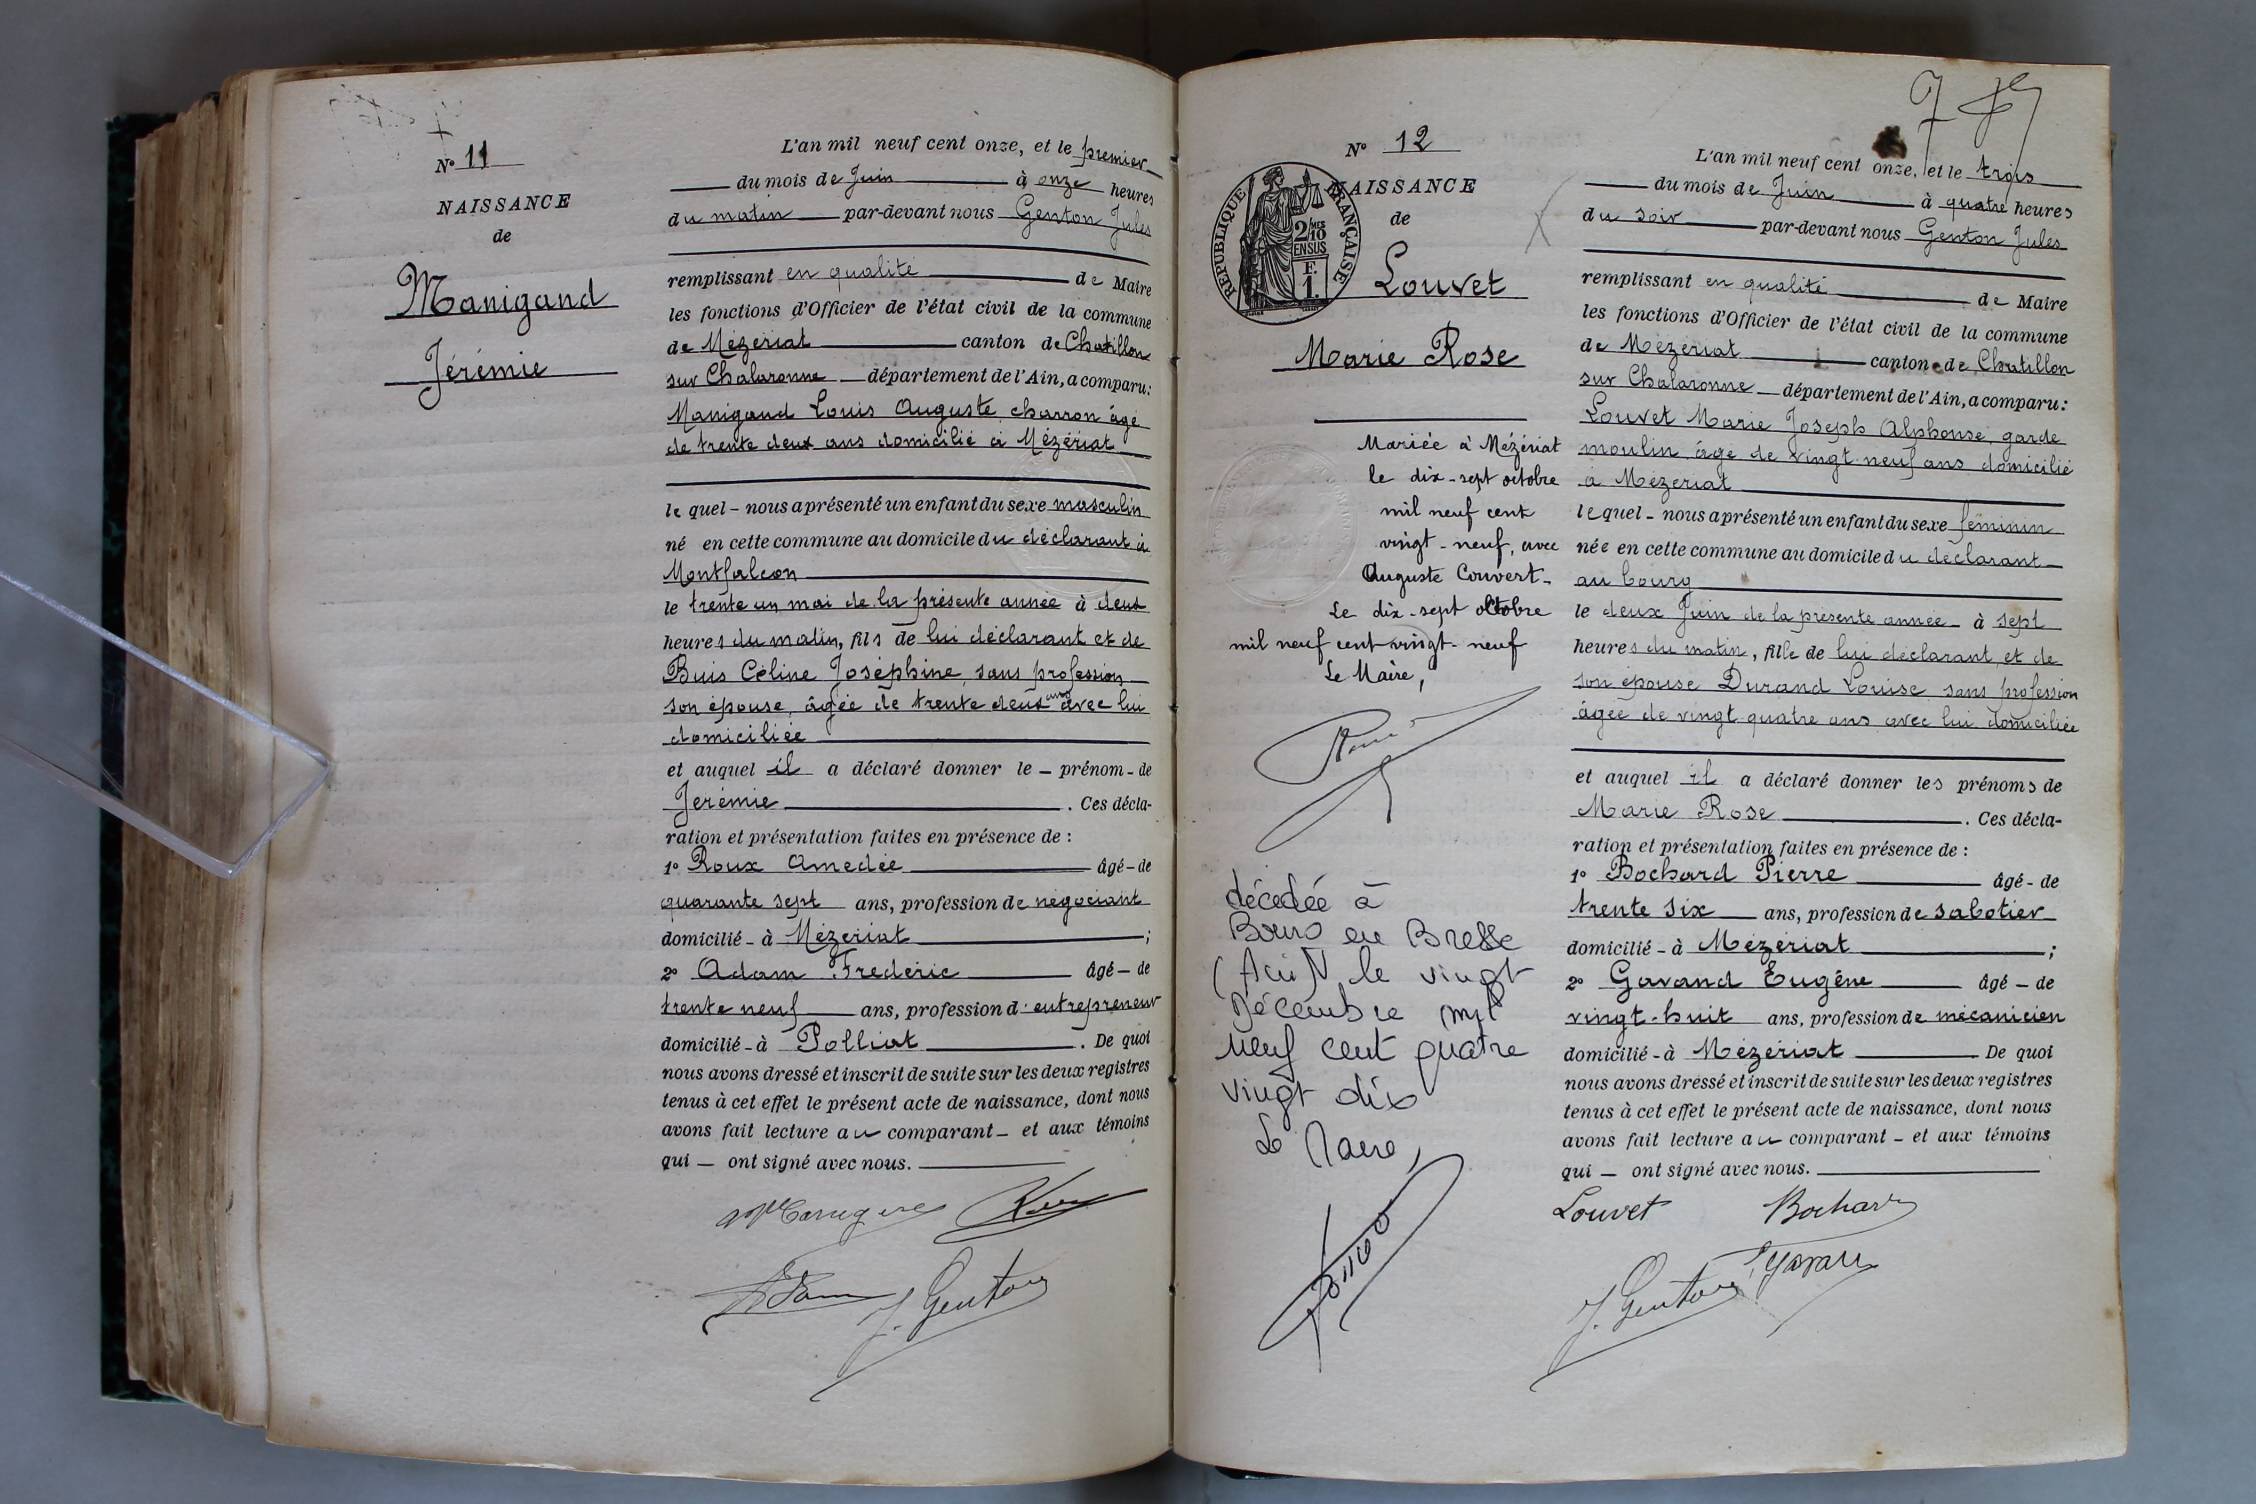 N° 11
NAISSANCE
de
Manigand
Jérémie
L'an mil neuf cent onze, et le premier
du mois de Juin à onze heures
du matin par-devant nous Genton Jules
remplissant en qualité de Maire
les fonctions d'Officier de l'état civil de la commune
de Mézériat canton de Chatillon
sur Chalaronne département de l'Ain, a comparu:
Manigand Louis Auguste charron âgé
de trente deux ans domicilié à Mézériat
le quel - nous a présenté un enfant du sexe masculin
né en cette commune au domicile du déclarant à
Montfalcon
le trente un mai de la présente année à deux
heures du matin, fils de lui déclarant et de
Buis Céline Joséphine, sans profession
son épouse, âgée de trente deux ans avec lui
domiciliée
et auquel il a déclaré donner le - prénom - de
Jerémie . Ces décla-
ration et présentation faites en présence de :
1° Roux Amedée âgé - de
quarante sept ans, profession de négociant
domicilié - à Mézériat ;
2° Adam Frederic âgé - de
trente neuf ans, profession d'entrepreneur
domicilié - à Polliat . De quoi
nous avons dressé et inscrit de suite sur les deux registres
tenus à cet effet le présent acte de naissance, dont nous
avons fait lecture au comparant - et aux témoins
qui - ont signé avec nous.
Adam
J. Genton
N° 12
NAISSANCE
de
REPUBLIQUE FRANÇAISE
2/10 MES
EN SUS
F.
1.
Louvet
Marie Rose
Mariée à Mézériat
le dix-sept octobre
mil neuf cent
vingt-neuf, avec
Auguste Couvert-
Le dix-sept octobre
mil neuf cent vingt-neuf
Le Maire,
décédée à
Bourg en Bresse
(Ain) le vingt
Décembre mil
neuf cent quatre
vingt dix
Le Maire,
L'an mil neuf cent onze, et le trois
du mois de Juin à quatre heures
du soir par-devant nous Genton Jules
remplissant en qualité de Maire
les fonctions d'Officier de l'état civil de la commune
de Mézériat canton de Chatillon
sur Chalaronne département de l'Ain, a comparu:
Louvet Marie Joseph Alphonse, garde
moulin, âgé de vingt-neuf ans domicilié
à Mézériat
le quel - nous a présenté un enfant du sexe féminin
née en cette commune au domicile du déclarant
au bourg
le deux Juin de la présente année - à sept
heures du matin, fille de lui déclarant et de
son épouse Durand Louise sans profession
âgée de vingt quatre ans avec lui domiciliée
et auquel il a déclaré donner les prénoms de
Marie Rose . Ces décla-
ration et présentation faites en présence de :
1° Bochard Pierre âgé - de
trente six ans, profession de sabotier
domicilié - à Mézériat ;
2° Gavand Eugène âgé - de
vingt-huit ans, profession de mécanicien
domicilié - à Mézériat De quoi
nous avons dressé et inscrit de suite sur les deux registres
tenus à cet effet le présent acte de naissance, dont nous
avons fait lecture au comparant - et aux témoins
qui - ont signé avec nous.
Louvet Bochard
J. Genton